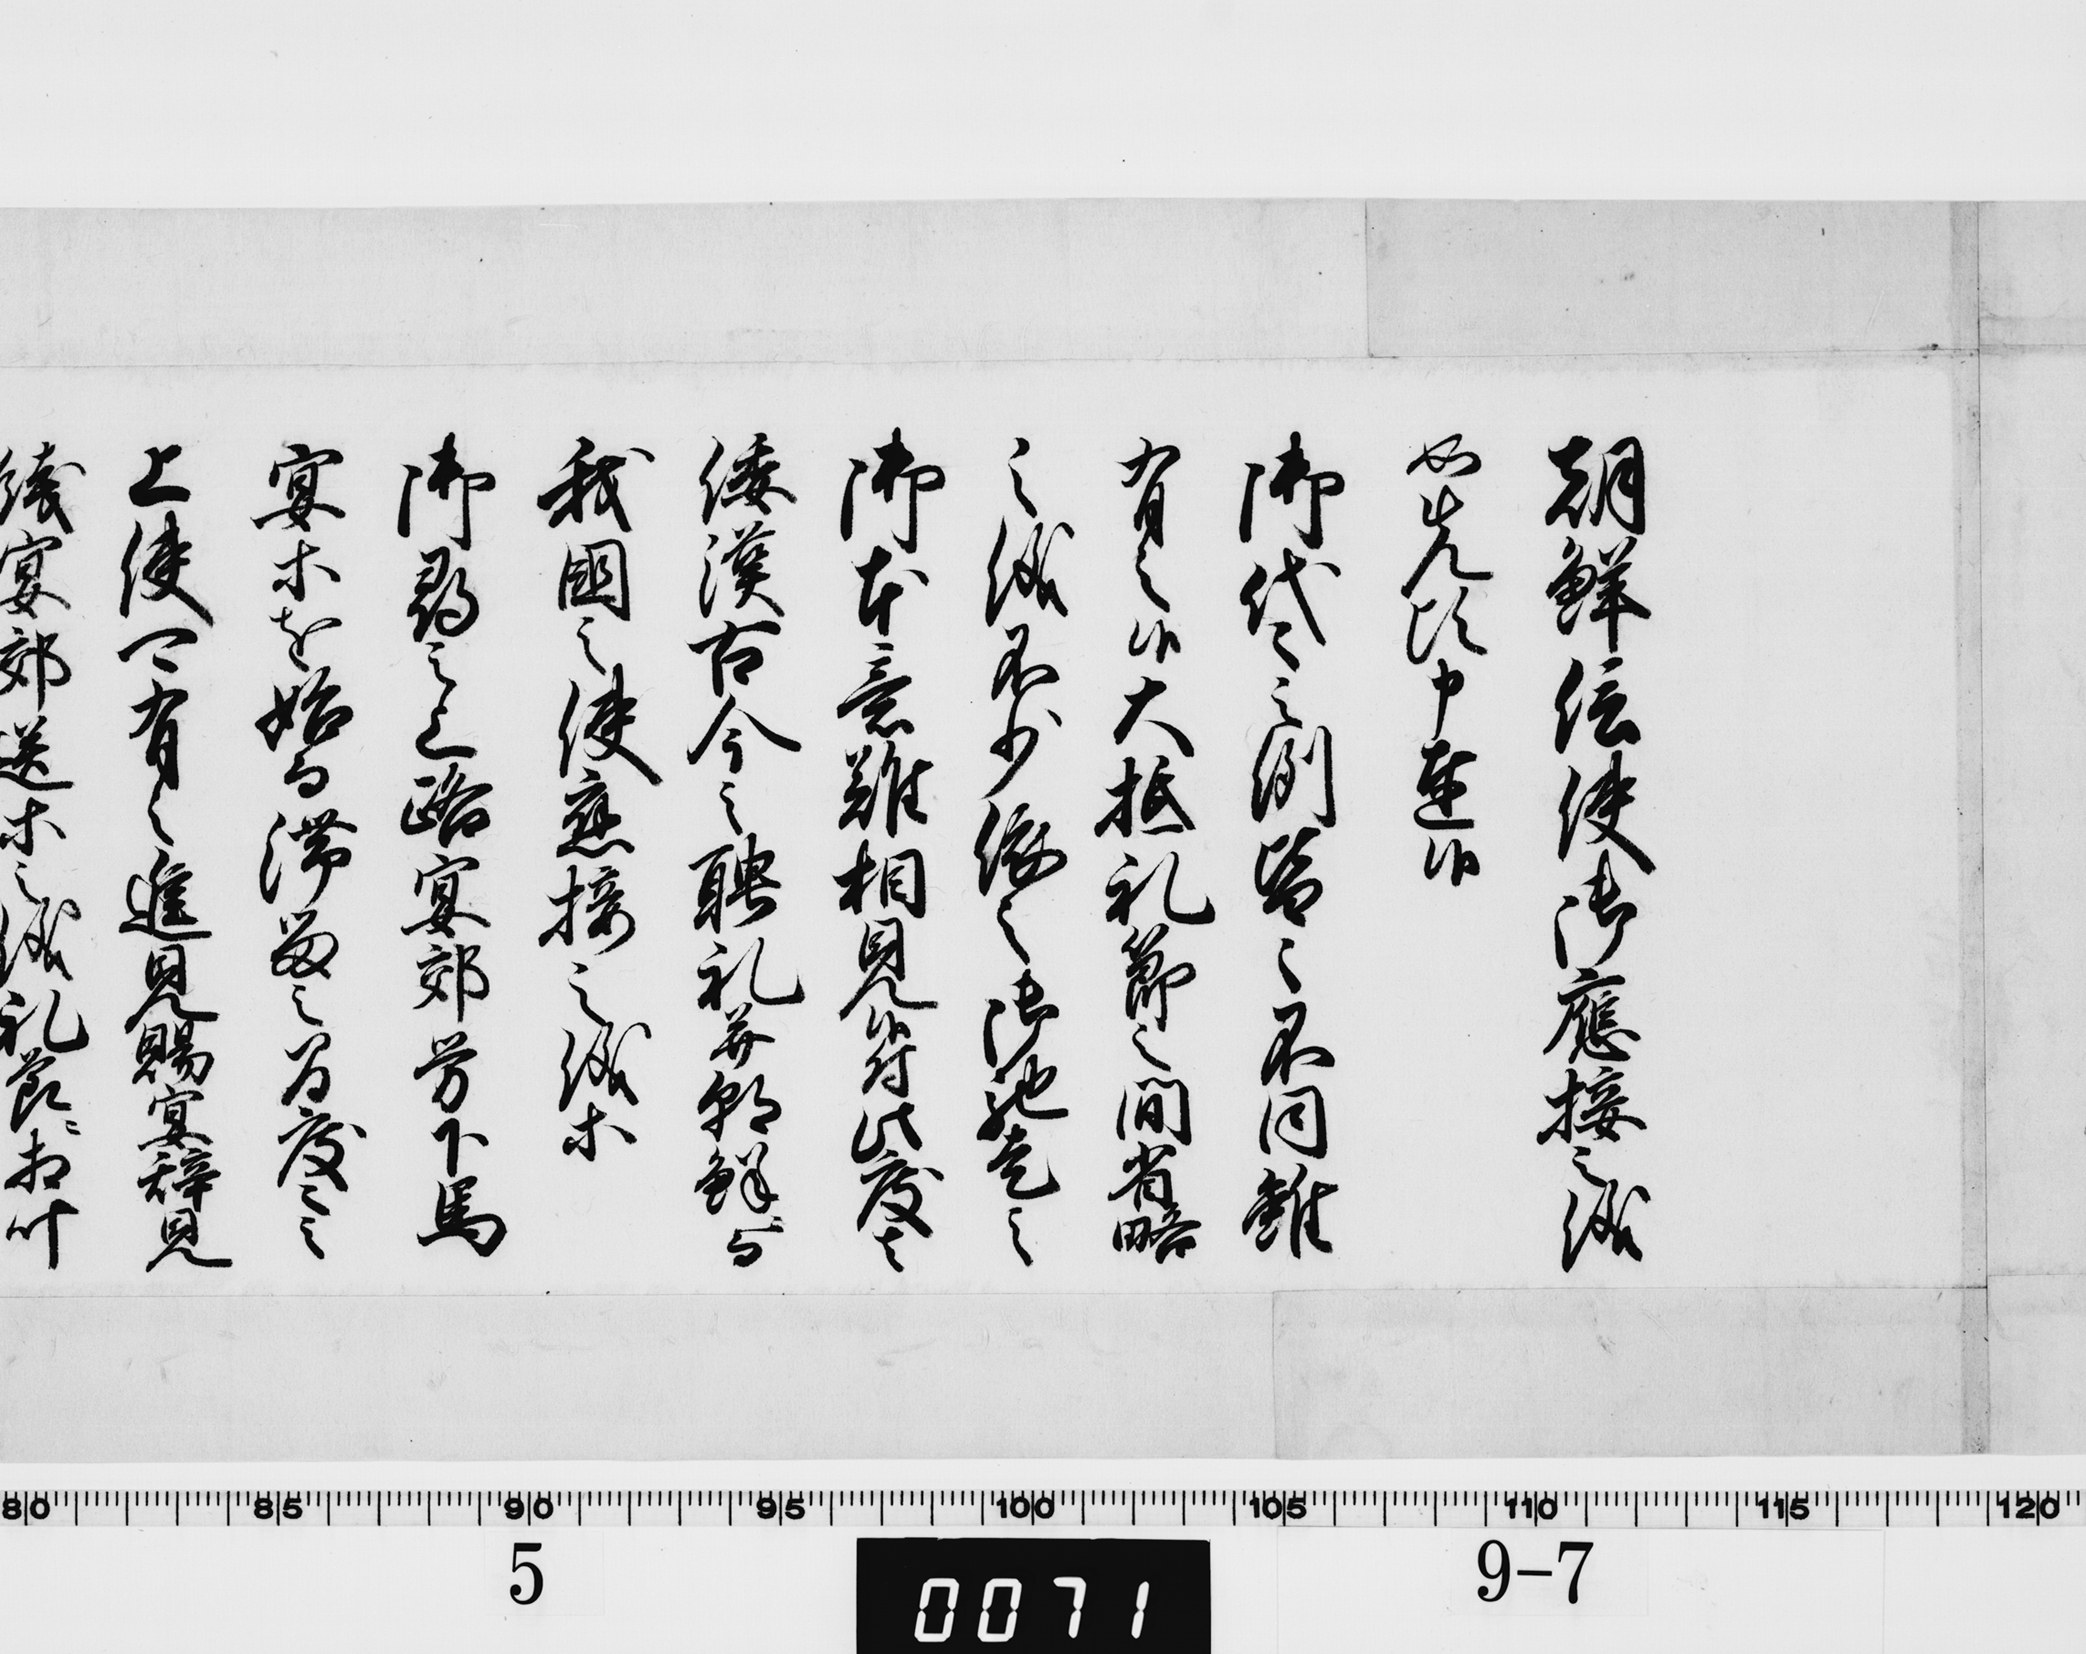 朝鮮信使御應接之儀
如先頃申達候
御代々之例皆々不同雖
有之候大抵礼節之間省略
之儀不少依之御馳走之
御本意難相見候付此度者
倭漢古今之聘礼并朝鮮ニ而
我國之使應接之儀等
御尋之上路宴郊労下馬
宴等を始而滞留之間度々之
上使ニ有之進見賜宴辞見
餞宴郊送等之儀礼節ニ相叶
80 85 90 95 100 105 110 115 120
5
0071
9-7